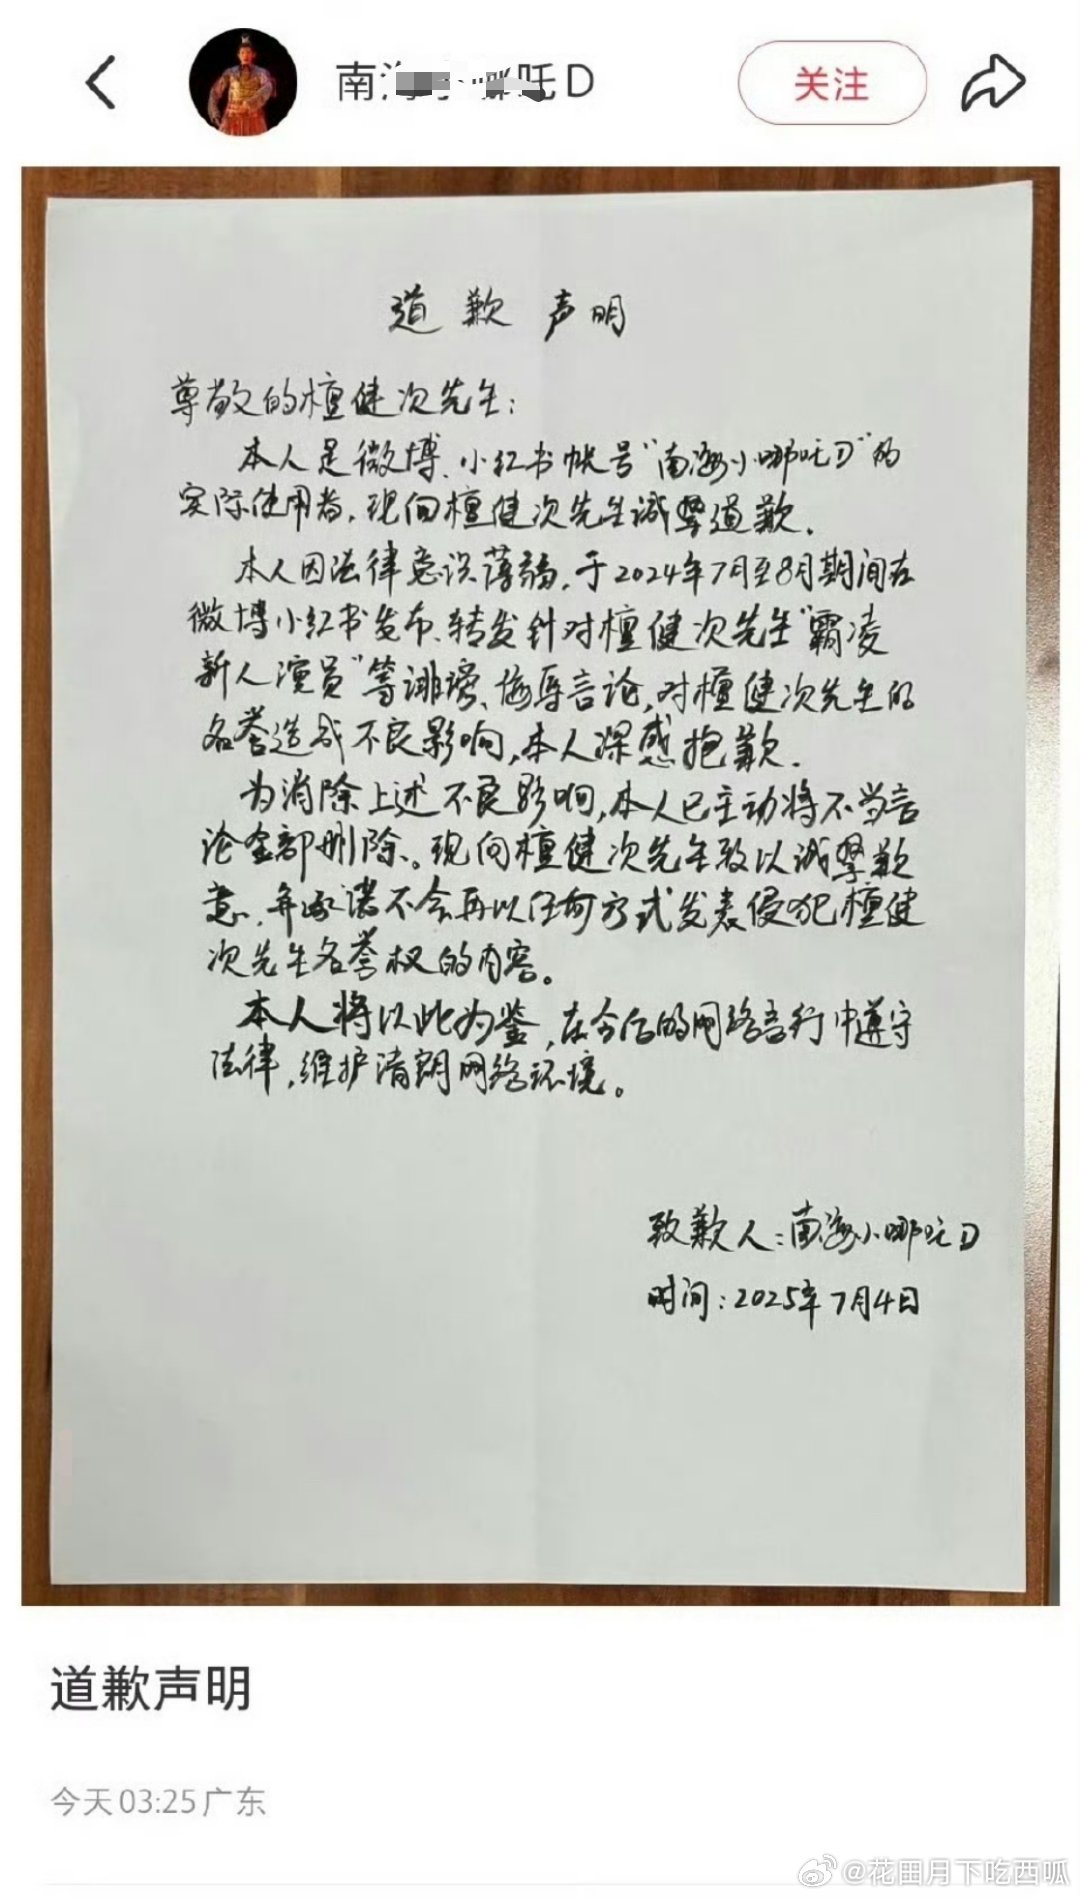 南海小哪吒D
关注
道歉声明
尊敬的檀健次先生:
本人是微博、小红书帐号“南海小哪吒D”的
实际使用者,现向檀健次先生诚挚道歉.
本人因法律意识薄弱,于2024年7月至8月期间在
微博小红书发布、转发针对檀健次先生“霸凌
新人演员”等诽谤、侮辱言论,对檀健次先生的
名誉造成不良影响,本人深感抱歉.
为消除上述不良影响,本人已主动将不当言
论全部删除。现向檀健次先生致以诚挚歉
意,并承诺不会再以任何方式发表侵犯檀健
次先生名誉权的内容。
本人将以此为鉴,在今后的网络言行中遵守
法律,维护清朗网络环境。
致歉人:南海小哪吒D
时间:2025年7月4日
道歉声明
今天 03:25 广东
@花田月下吃西呱